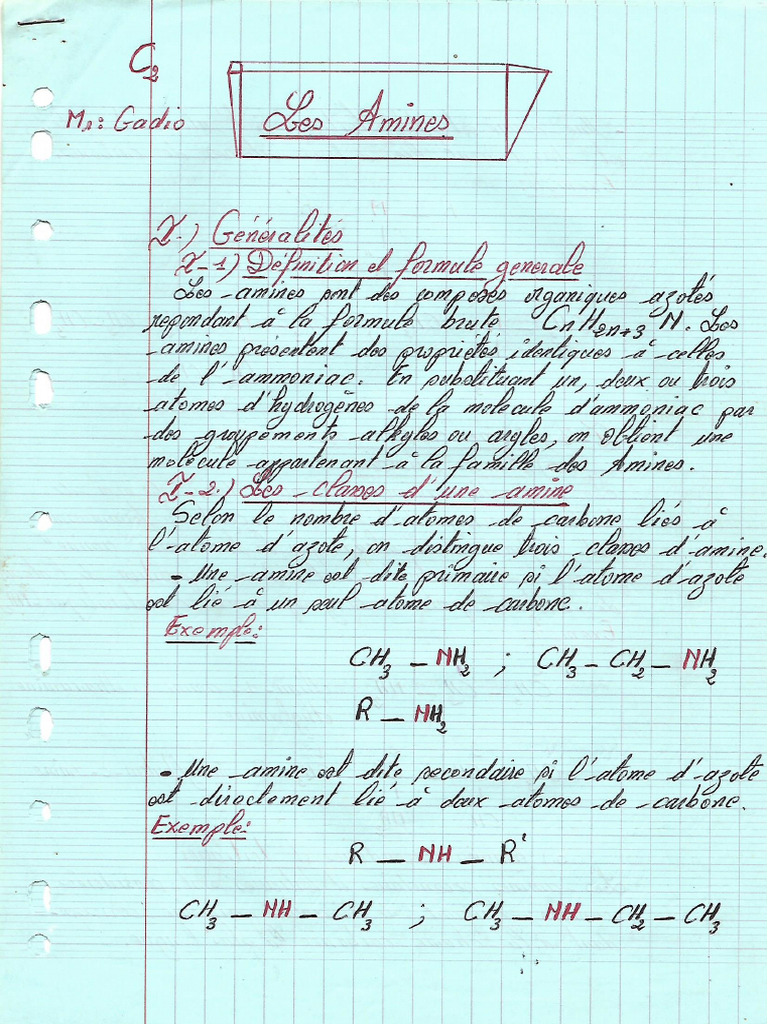 C₂
Mr: Gadio
Les Amines
I-) Généralités
I-1) Définition et formule generale
Les amines sont des composés organiques azotés
repondant à la formule brute CnH2n+3 N. Les
amines présentent des propriétés identiques à celles
de l'ammoniac. En substituant un, deux ou trois
atomes d'hydrogènes de la molécule d'ammoniac par
des groupements alkyles ou aryles, on obtient une
molécule appartenant à la famille des Amines.
I-2.) Les classes d'une amine
Selon le nombre d'atomes de carbone liés à
l'atome d'azote, on distingue trois classes d'amine.
- Une amine est dite primaire si l'atome d'azote
est lié à un seul atome de carbone.
Exemple:
CH₃ — NH₂ ; CH₃ — CH₂ — NH₂
R — NH₂
- Une amine est dite secondaire si l'atome d'azote
est directement lié à deux atomes de carbone.
Exemple:
R — NH — R'
CH₃ — NH — CH₃ ; CH₃ — NH — CH₂ — CH₃